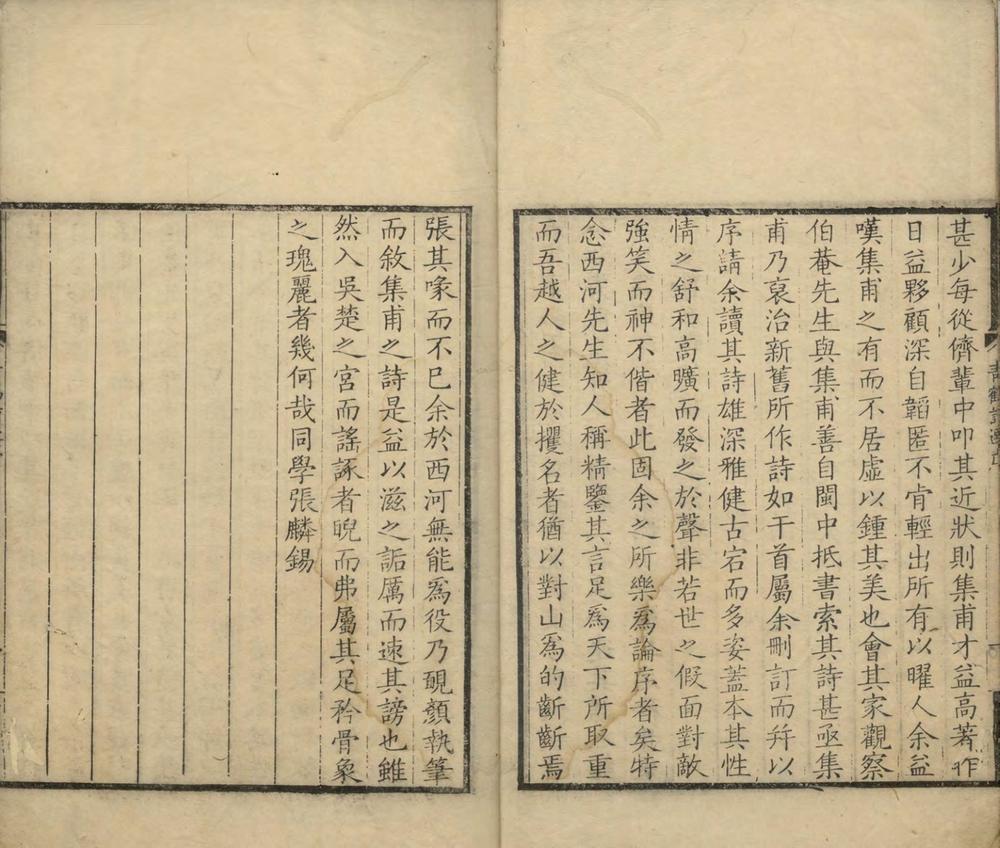 甚少每從儕輩中叩其近狀則集甫才益高著作
日益夥顧深自韜匿不肯輕出所有以曜人余益
嘆集甫之有而不居虛以鍾其美也會其家觀察
伯菴先生與集甫善自閩中抵書索其詩甚亟集
甫乃裒治新舊所作詩如干首屬余刪訂而幷以
序請余讀其詩雄深雅健古宕而多姿蓋本其性
情之舒和高曠而發之於聲非若世之假面對敵
強笑而神不偕者此固余之所樂爲論序者矣特
念西河先生知人稱精鑒其言足爲天下所取重
而吾越人之健於攫名者猶以對山爲的齗齗焉
張其喙而不已余於西河無能爲役乃靦顏執筆
而敘集甫之詩是益以滋之詬厲而速其謗也雖
然入吳楚之宮而謠諑者睨而弗屬其足矜骨象
之瑰麗者幾何哉同學張麟錫